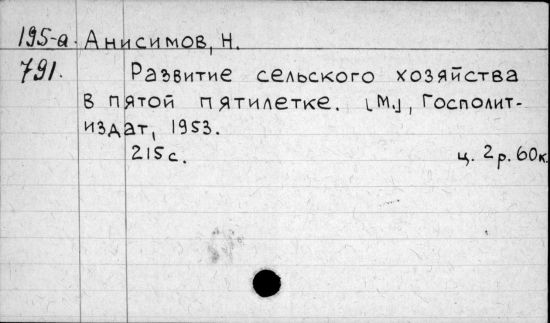 195-а. Анисимов, Н.
791. Развитие сельского хозяйства
в пятой пятилетке. [М.], Госполит-
издат, 1953.
215 с. ц. 2 р. 60к.